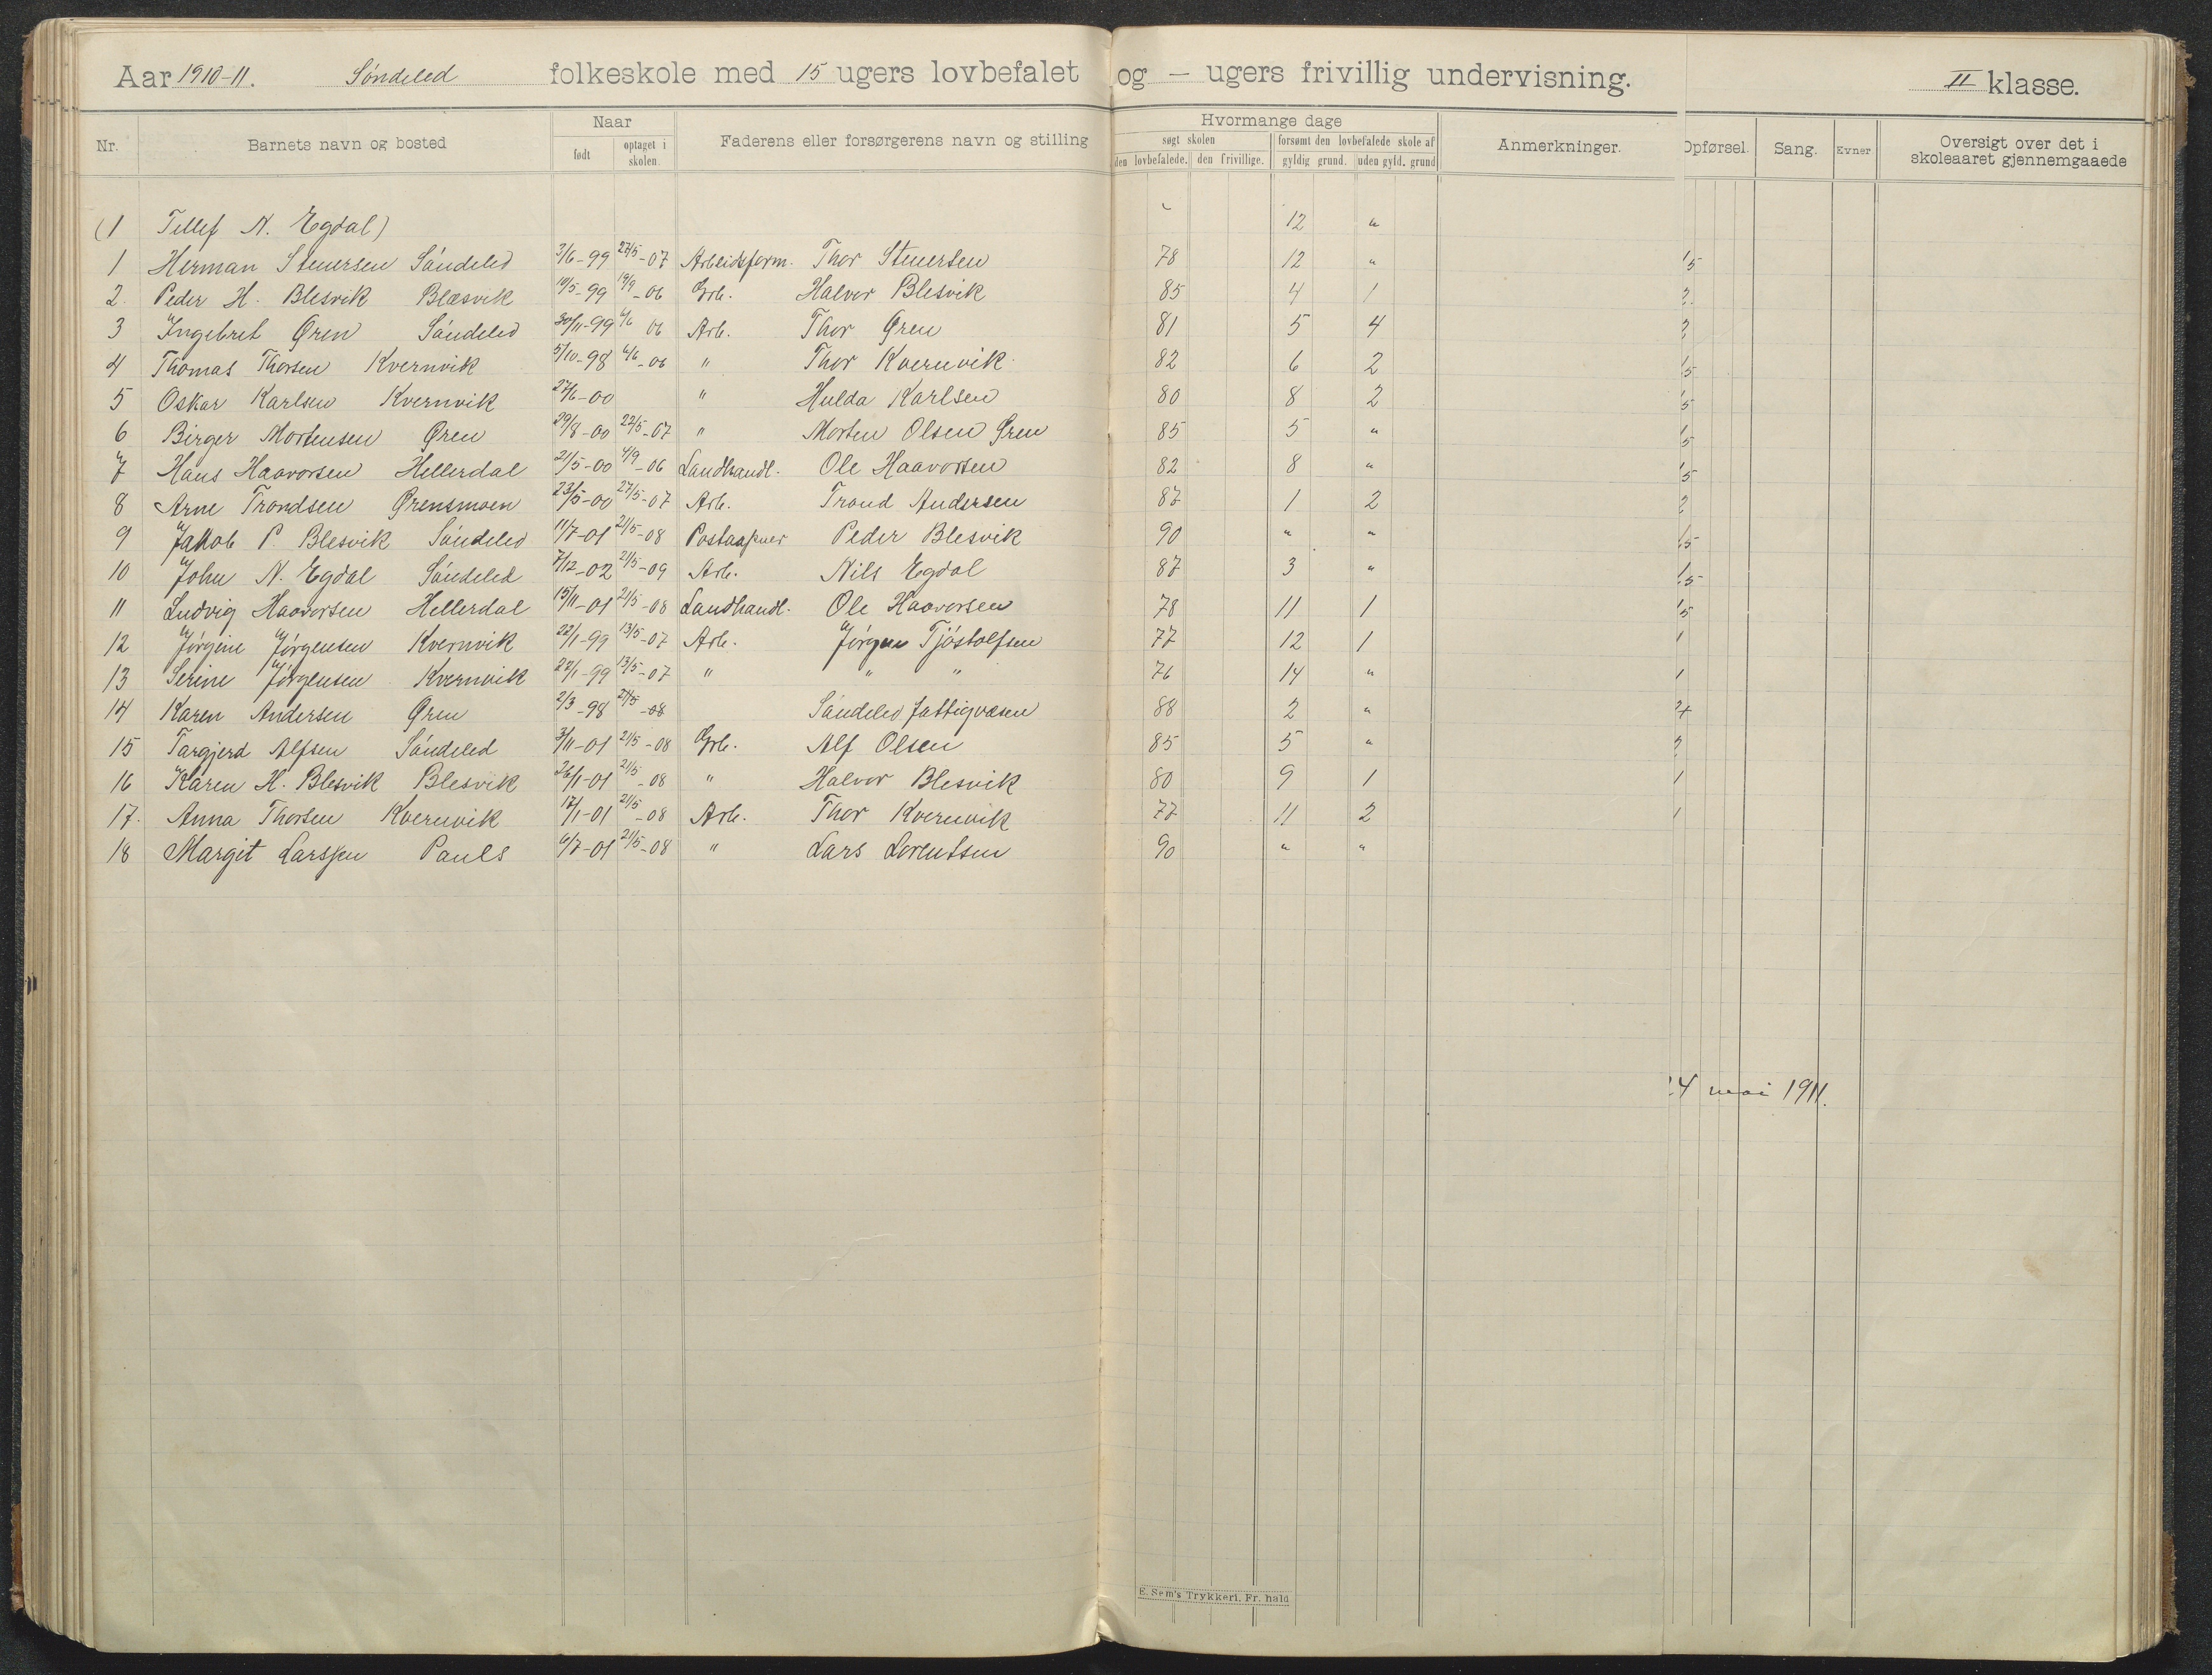 Aar 1910-11. Söndeled folkeskole med 15 ugers lovbefalet og — ugers frivillig undervisning. II klasse.
Nr. Barnets navn og bosted Naar født optaget i skolen. Faderens eller forsørgerens navn og stilling Hvormange dage søgt skolen den lovbefalede. den frivillige. forsømt den lovbefalede skole af gyldig grund. uden gyld. grund Anmerkninger. Opførsel. Sang. Evner Oversigt over det i skoleaaret gjennemgaaede
(1 Tellef N. Egdal) 12 "
1 Herman Stenersen Söndeled 3/6-99 27/5-07 Arbeidsform. Thor Stenersen 78 12 " 1,5
2. Peder H. Blesvik Blæsvik 10/5-99 19/9-06 Grb. Halvor Blesvik 85 4 1 2
3 Ingebret Øren Söndeled 30/11-99 6/6 06 Arb. Thor Øren 81 5 4 2
4 Thomas Thorsen Kvernvik 5/10-98 6/6-06 " Thor Kvernvik 82 6 2 1,5
5 Oskar Karlsen Kvernvik 27/6-00 " Hulda Karlsen 80 8 2 1,5
6 Birger Mortensen Øren 29/8-00 22/5-07 " Morten Olsen Øren 85 5 " 1,5
7 Hans Haavorsen Hellerdal 21/5-00 4/9-06 Landhandl. Ole Haavorsen 82 8 " 1,5
8 Arne Trondsen Ørensmoen 23/5-00 27/5-07 Arb. Trond Andersen 87 1 2 2
9 Jakob P. Blesvik Söndeled 11/7-01 21/5-08 Postaapner Peder Blesvik 90 " " 1,5
10 John N. Egdal Söndeled 7/12-02 21/5-09 Arb. Nils Egdal 87 3 " 1,5
11 Ludvig Haavorsen Hellerdal 15/11-01 21/5-08 Landhandl. Ole Haavorsen 78 11 1 1,5
12 Jörgine Jörgensen Kvernvik 22/1-99 13/5-07 Arb. Jörgen Tjöstolfsen 77 12 1 1
13 Serine Jörgensen Kvernvik 22/1-99 13/5-07 " " " 76 14 " 1
14 Karen Andersen Øren 2/3-98 27/5-08 Söndeled fattigvæsen 88 2 "
15 Targjerd Alfsen Söndeled 3/11-01 21/5-08 Grb. Alf Olsen 85 5 " 2
16 Karen H. Blesvik Blesvik 26/1-01 21/5-08 " Halvor Blesvik 80 9 1 1
17. Anna Thorsen Kvernvik 17/1-01 21/5-08 Arb. Thor Kvernvik 77 11 2 1
18 Margit Larssen Pauls 6/7-01 21/5-08 " Lars Lorentsen 90 " "
24 mai 1911.
E. Sem's Trykkeri, Fr. hald